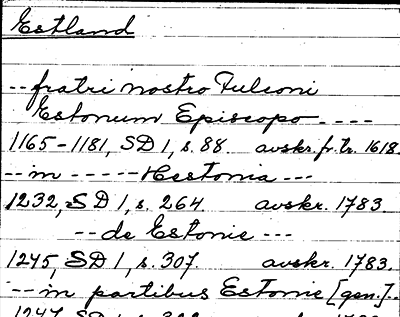 Estland
-- fratri nostro Fulconi
Estonum Episcopo ----
1165-1181, SD 1, s. 88. avskr. fr. tr. 1618.
-- in ----- Hestonia ---
1232, SD 1, s. 264. avskr. 1783.
-- de Estonie ---
1245, SD 1, s. 307. avskr. 1783.
-- in partibus Estonie [gen.]..